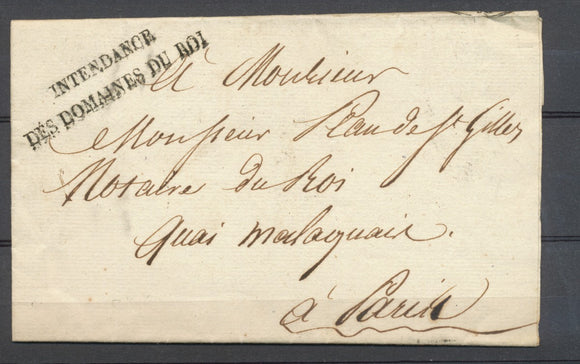 INTENDANCE
DES DOMAINES DU ROI
A Monsieur
Monsieur Péan de St Gilles
Notaire du Roi
Quai malaquais.
à Paris